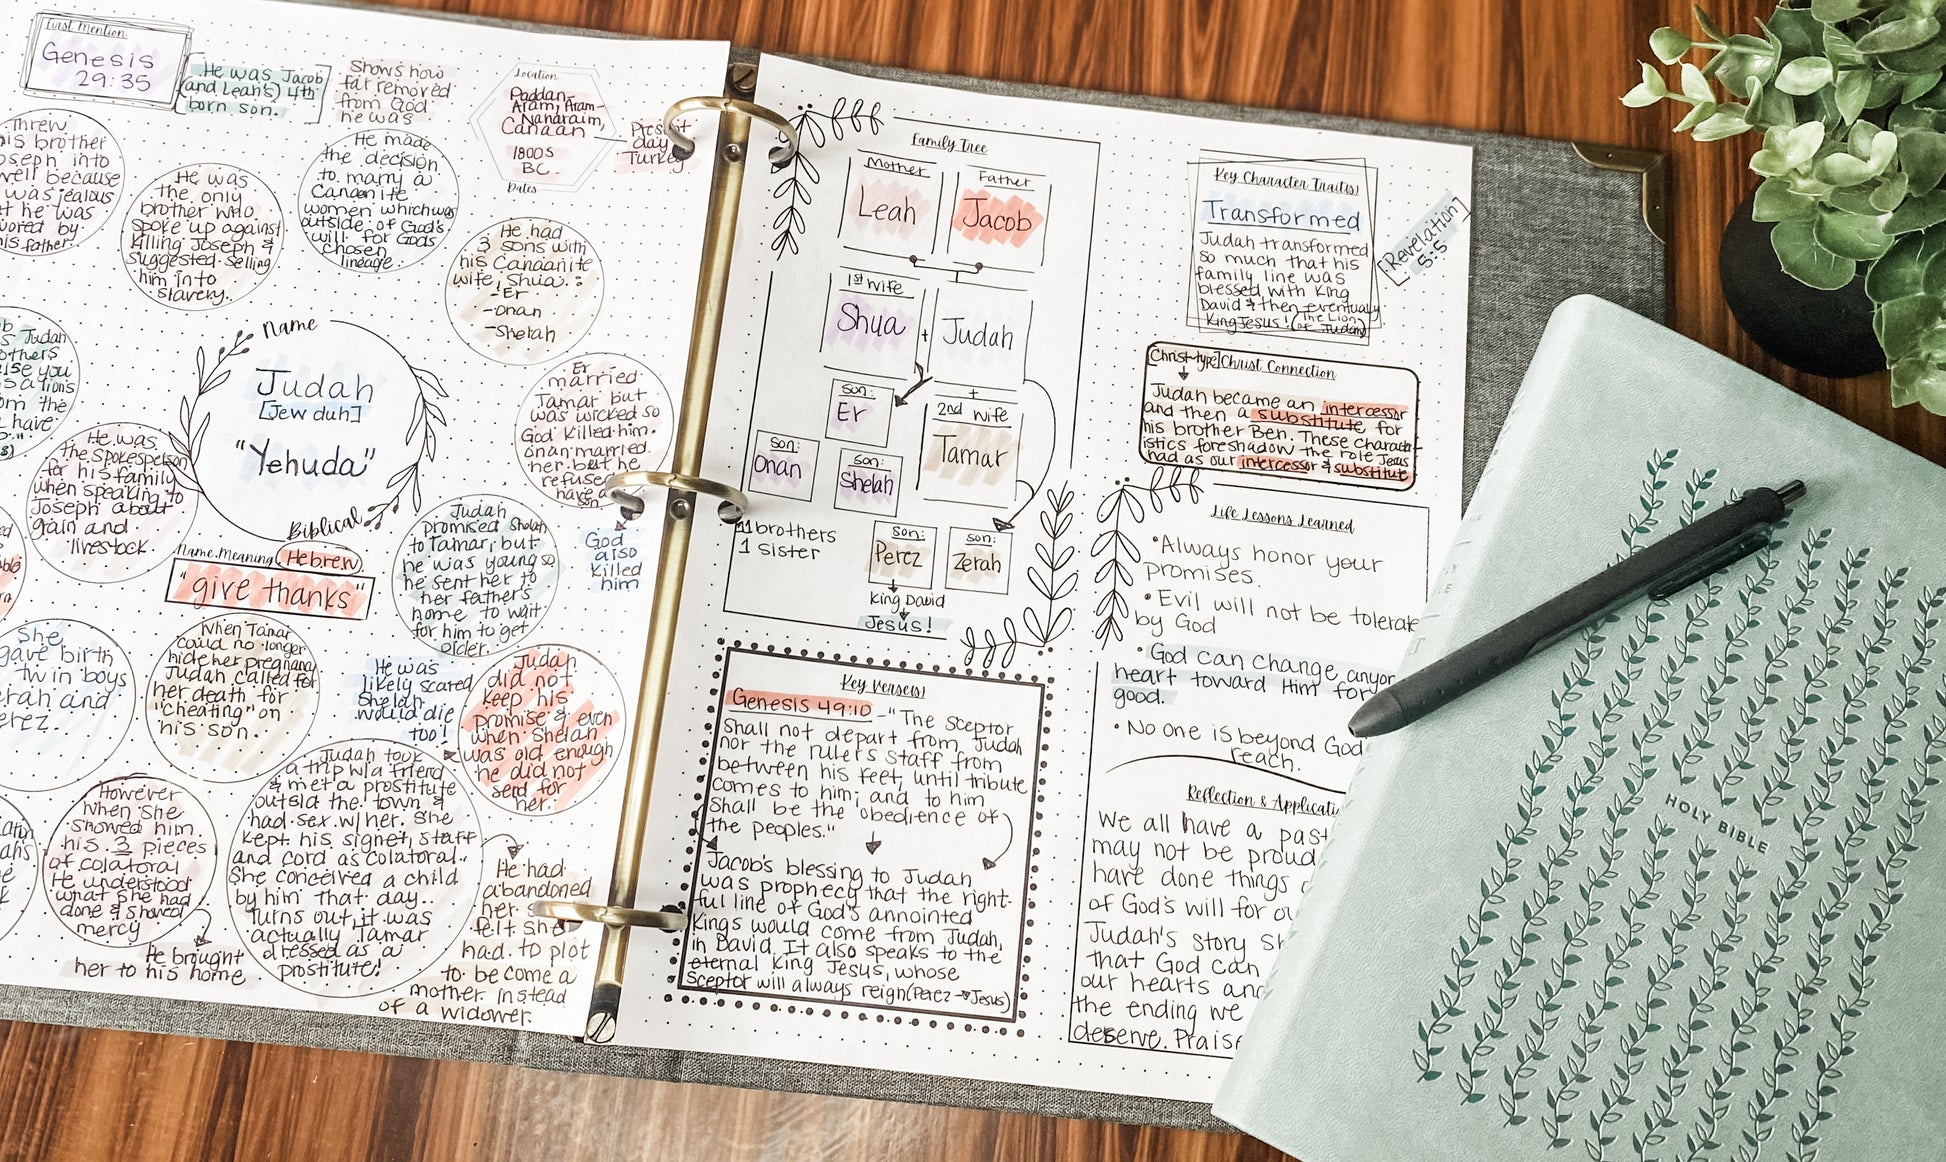 First Mention
Genesis
29:35
He was Jacob
(and Leah's) 4th
born son.
Shows how
far removed
from God
he was
Location
Paddan-
Aram, Aram-
Naharaim,
Canaan
1800s
BC
Dates
Present
day
Turkey
Threw
his brother
Joseph into
well because
was jealous
he was
by
his father.
He was
the only
brother who
spoke up against
killing Joseph &
suggested selling
him into
slavery.
He made
the decision
to marry a
Canaanite
women which was
outside of God's
will for God's
chosen
lineage.
He had
3 sons with
his Canaanite
wife, Shua.:
-Er
-Onan
-Shelah
Judah
you
have
Name
Judah
[Jew duh]
"Yehuda"
Biblical
Name Meaning (Hebrew)
"give thanks"
Er
married
Tamar but
was wicked so
God killed him.
Onan married
her but he
refused
have a
son.
God
also
killed
him
He was
the spokesperson
for his family
when speaking to
Joseph about
grain and
livestock.
Judah
promised Shelah
to Tamar, but
he was young so
he sent her to
her father's
home to wait
for him to get
older.
She
gave birth
twin boys
and
When Tamar
could no longer
hide her pregnancy
Judah called for
her death for
"cheating" on
his son.
He was
likely scared
Shelah
would die
too!
Judah
did not
keep his
promise & even
when Shelah
was old enough
he did not
send for
her.
However
when she
showed him
his 3 pieces
of colatoral
He understood
what she had
done & showed
mercy
He brought
her to his home
Judah took
a trip w/a friend
& met a prostitute
outsid the town &
had sex w/her. She
kept his signet, staff
and cord as colatoral..
She conceived a child
by him that day..
Turns out, it was
actually Tamar
dressed as a
prostitute!
He had
abandoned
her
felt she
had to plot
to become a
mother instead
of a widower.
Family Tree
Mother
Leah
Father
Jacob
1st wife
Shua
+
Judah
+
2nd wife
Tamar
son:
Er
son:
Onan
son:
Shelah
11 brothers
1 sister
son:
Perez
son:
Zerah
King David
Jesus!
Key Verse(s)
Genesis 49:10 - "The sceptor
shall not depart from Judah
nor the rulers staff from
between his feet, until tribute
comes to him; and to him
shall be the obedience of
the peoples."
Jacob's blessing to Judah
was prophecy that the right-
ful line of God's annointed
Kings would come from Judah,
in David. It also speaks to the
eternal King Jesus, whose
sceptor will always reign (Perez → Jesus)
Key Character Trait(s)
Transformed
Judah transformed
so much that his
family line was
blessed with King
David & then eventually
King Jesus! (The Lion
of Judah)
[Revelation]
5:5
Christ-type/Christ Connection
Judah became an intercessor
and then a substitute for
his brother Ben. These character-
istics foreshadow the role Jesus
had as our intercessor & substitute
Life Lessons Learned
•Always honor your
promises.
•Evil will not be tolerate
by God
•God can change
heart toward Him for
good.
•No one is beyond God
reach.
Reflection &
We all have a past
may not be proud
have done things
of God's will for
Judah's story
that God can
our hearts and
the ending we
deserve. Praise
HOLY BIBLE